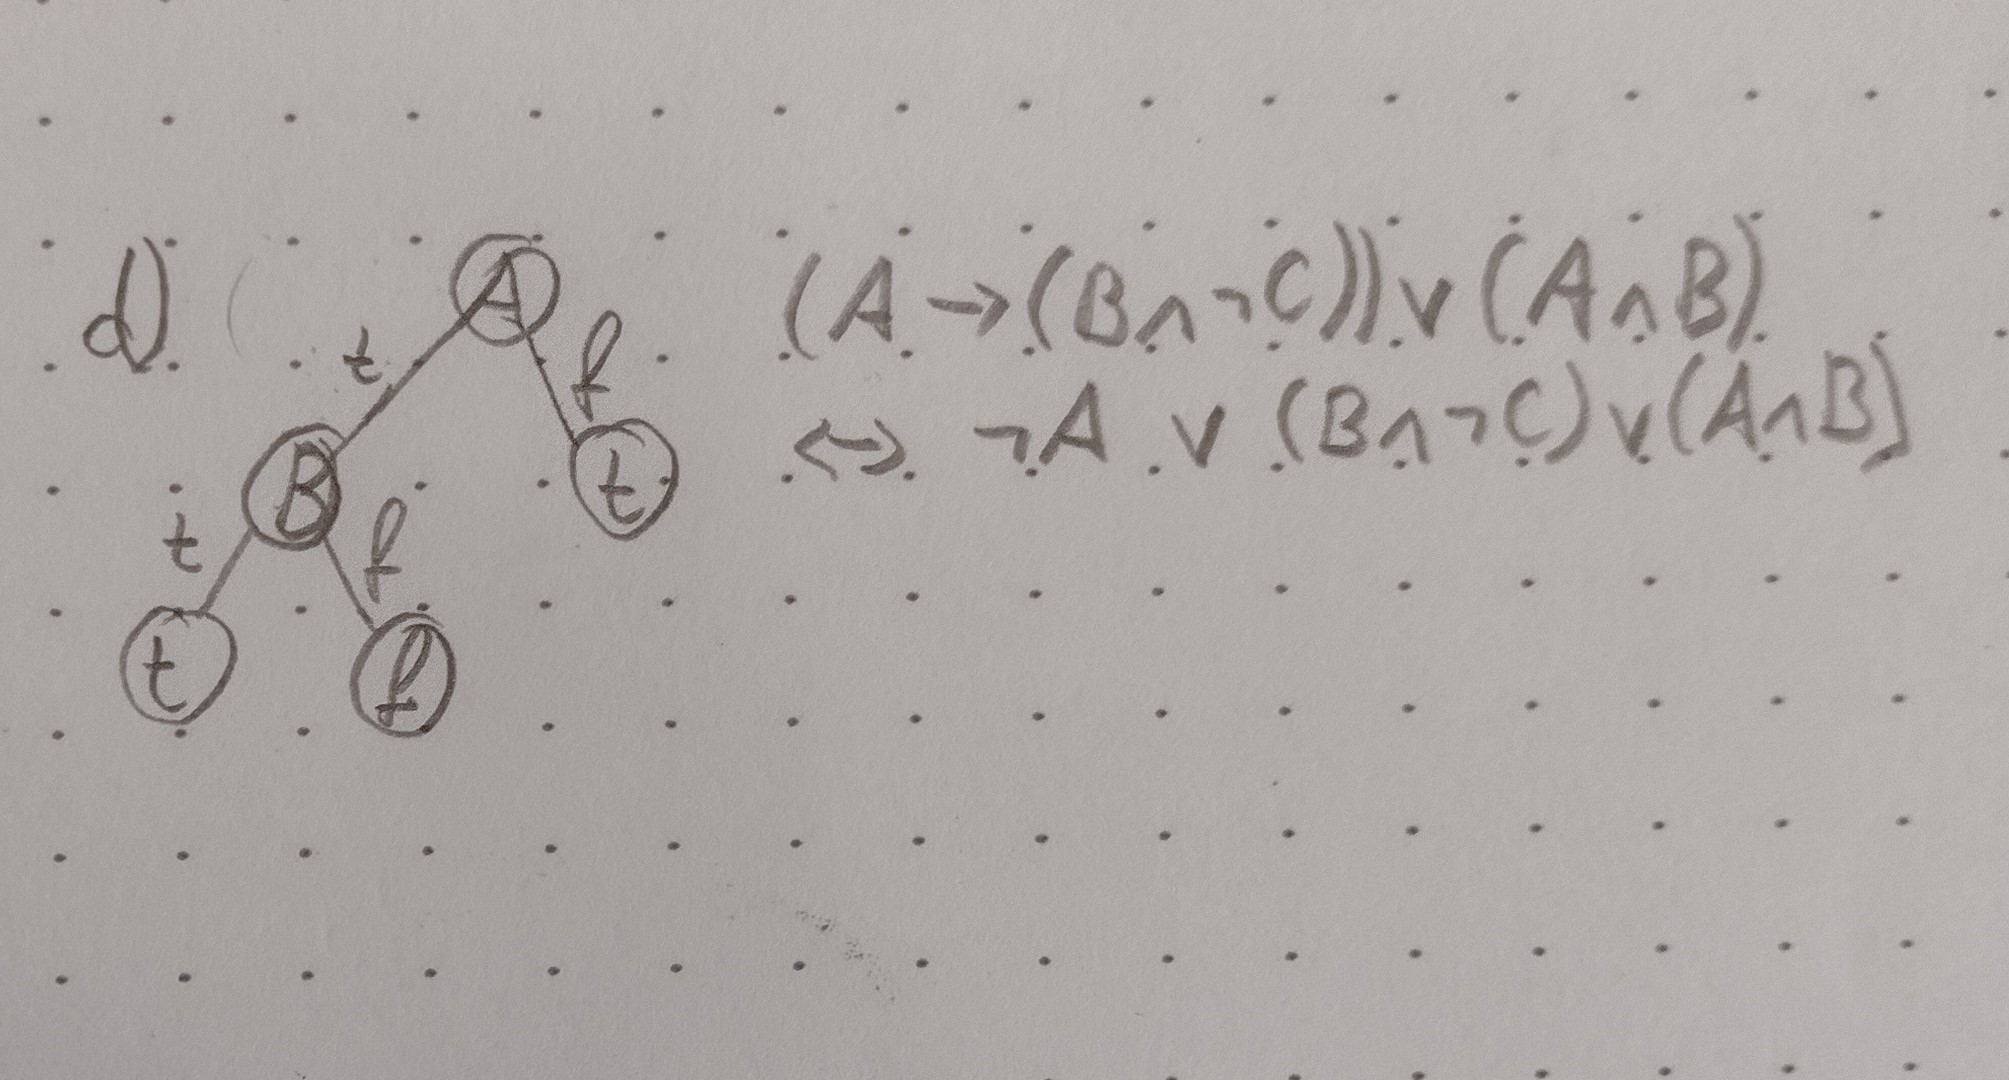 d)
A
t f
B t
t f
t f
(A → (B ∧ ¬C)) ∨ (A ∧ B)
↔ ¬A ∨ (B ∧ ¬C) ∨ (A ∧ B)